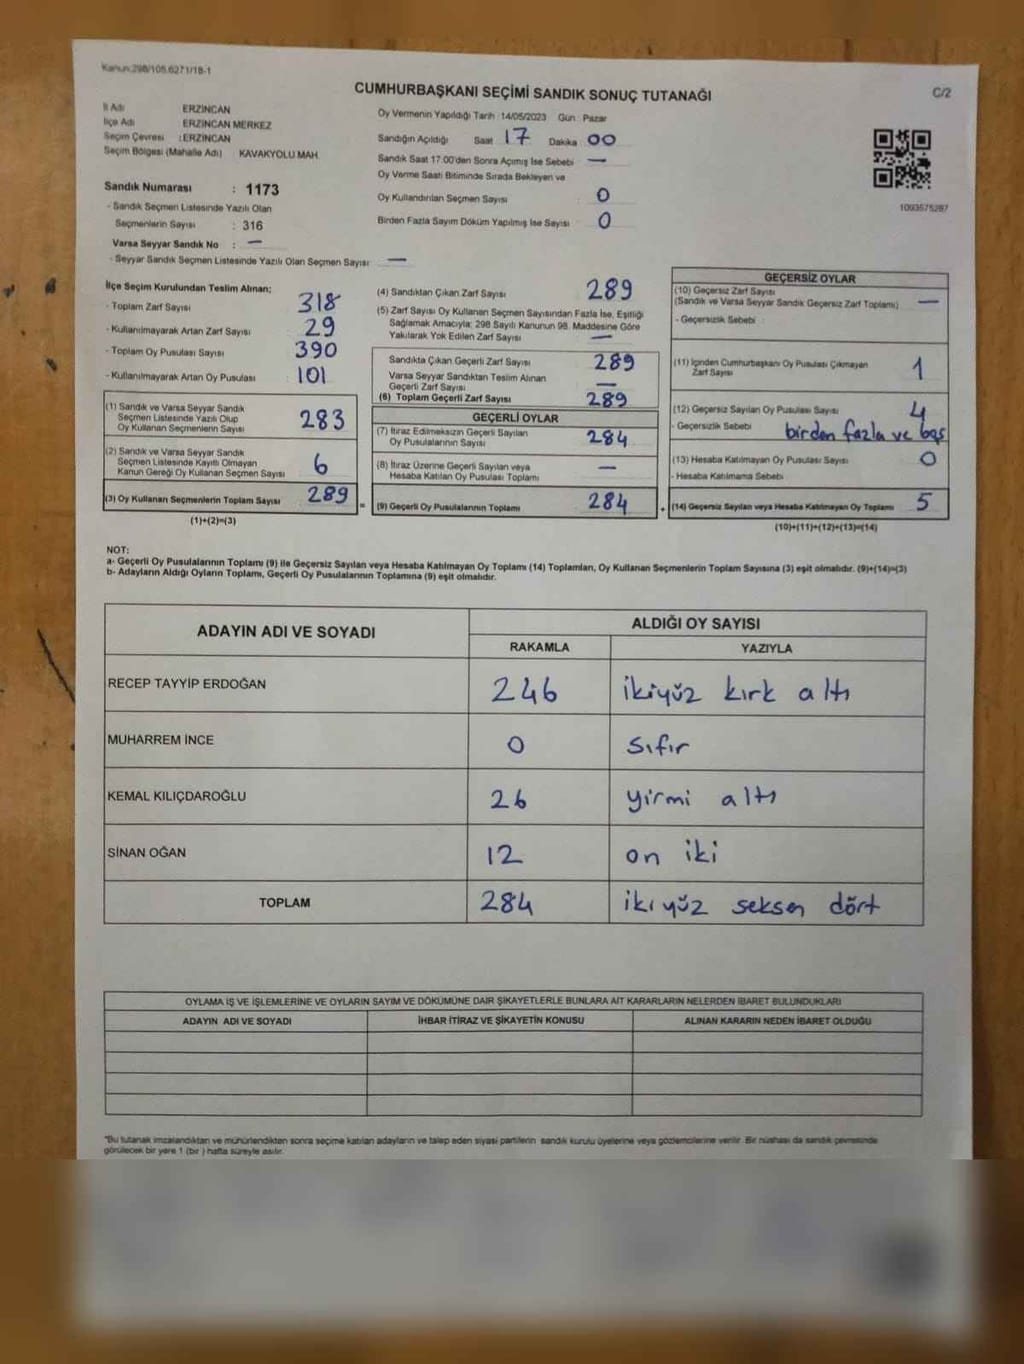 Kanun:298/105,6271/18-1
CUMHURBAŞKANI SEÇİMİ SANDIK SONUÇ TUTANAĞI
C/2
İl Adı ERZİNCAN
İlçe Adı ERZİNCAN MERKEZ
Seçim Çevresi : ERZİNCAN
Seçim Bölgesi (Mahalle Adı) KAVAKYOLU MAH.
Sandık Numarası : 1173
- Sandık Seçmen Listesinde Yazılı Olan
Seçmenlerin Sayısı : 316
Varsa Seyyar Sandık No : —
- Seyyar Sandık Seçmen Listesinde Yazılı Olan Seçmen Sayısı: —
Oy Vermenin Yapıldığı Tarih : 14/05/2023 Gün : Pazar
Sandığın Açıldığı Saat 17 Dakika 00
Sandık Saat 17:00'den Sonra Açımış İse Sebebi —
Oy Verme Saati Bitiminde Sırada Bekleyen ve
Oy Kullandırılan Seçmen Sayısı : 0
Birden Fazla Sayım Döküm Yapılmış İse Sayısı : 0
1093575287
İlçe Seçim Kurulundan Teslim Alınan;
- Toplam Zarf Sayısı : 318
- Kullanılmayarak Artan Zarf Sayısı : 29
- Toplam Oy Pusulası Sayısı : 390
- Kullanılmayarak Artan Oy Pusulası : 101
(1) Sandık ve Varsa Seyyar Sandık
Seçmen Listesinde Yazılı Olup
Oy Kullanan Seçmenlerin Sayısı 283
(2) Sandık ve Varsa Seyyar Sandık
Seçmen Listesinde Kayıtlı Olmayan
Kanun Gereği Oy Kullanan Seçmen Sayısı 6
(3) Oy Kullanan Seçmenlerin Toplam Sayısı 289
(1)+(2)=(3)
=
(4) Sandıktan Çıkan Zarf Sayısı 289
(5) Zarf Sayısı Oy Kullanan Seçmen Sayısından Fazla İse, Eşitliği
Sağlamak Amacıyla; 298 Sayılı Kanunun 98. Maddesine Göre
Yakılarak Yok Edilen Zarf Sayısı —
Sandıkta Çıkan Geçerli Zarf Sayısı 289
Varsa Seyyar Sandıktan Teslim Alınan
Geçerli Zarf Sayısı —
(6) Toplam Geçerli Zarf Sayısı 289
GEÇERLİ OYLAR
(7) İtiraz Edilmeksizin Geçerli Sayılan
Oy Pusulalarının Sayısı 284
(8) İtiraz Üzerine Geçerli Sayılan veya
Hesaba Katılan Oy Pusulası Toplamı —
(9) Geçerli Oy Pusulalarının Toplamı 284
+
GEÇERSİZ OYLAR
(10) Geçersiz Zarf Sayısı
(Sandık ve Varsa Seyyar Sandık Geçersiz Zarf Toplamı) —
- Geçersizlik Sebebi
(11) İçinden Cumhurbaşkanı Oy Pusulası Çıkmayan
Zarf Sayısı 1
(12) Geçersiz Sayılan Oy Pusulası Sayısı 4
- Geçersizlik Sebebi birden fazla ve boş
(13) Hesaba Katılmayan Oy Pusulası Sayısı 0
- Hesaba Katılmama Sebebi
(14) Geçersiz Sayılan veya Hesaba Katılmayan Oy Toplamı 5
(10)+(11)+(12)+(13)=(14)
NOT:
a- Geçerli Oy Pusulalarının Toplamı (9) ile Geçersiz Sayılan veya Hesaba Katılmayan Oy Toplamı (14) Toplamları, Oy Kullanan Seçmenlerin Toplam Sayısına (3) eşit olmalıdır. (9)+(14)=(3)
b- Adayların Aldığı Oyların Toplamı, Geçerli Oy Pusulalarının Toplamına (9) eşit olmalıdır.
ADAYIN ADI VE SOYADI ALDIĞI OY SAYISI
RAKAMLA YAZIYLA
RECEP TAYYİP ERDOĞAN 246 ikiyüz kırk altı
MUHARREM İNCE 0 sıfır
KEMAL KILIÇDAROĞLU 26 yirmi altı
SİNAN OĞAN 12 on iki
TOPLAM 284 ikiyüz seksen dört
OYLAMA İŞ VE İŞLEMLERİNE VE OYLARIN SAYIM VE DÖKÜMÜNE DAİR ŞİKAYETLERLE BUNLARA AİT KARARLARIN NELERDEN İBARET BULUNDUKLARI
ADAYIN ADI VE SOYADI İHBAR İTİRAZ VE ŞİKAYETİN KONUSU ALINAN KARARIN NEDEN İBARET OLDUĞU
*Bu tutanak imzalandıktan ve mühürlendikten sonra seçime katılan adayların ve talep eden siyasi partilerin sandık kurulu üyelerine veya gözlemcilerine verilir. Bir nüshası da sandık çevresinde
görülecek bir yere 1 (bir) hafta süreyle asılır.